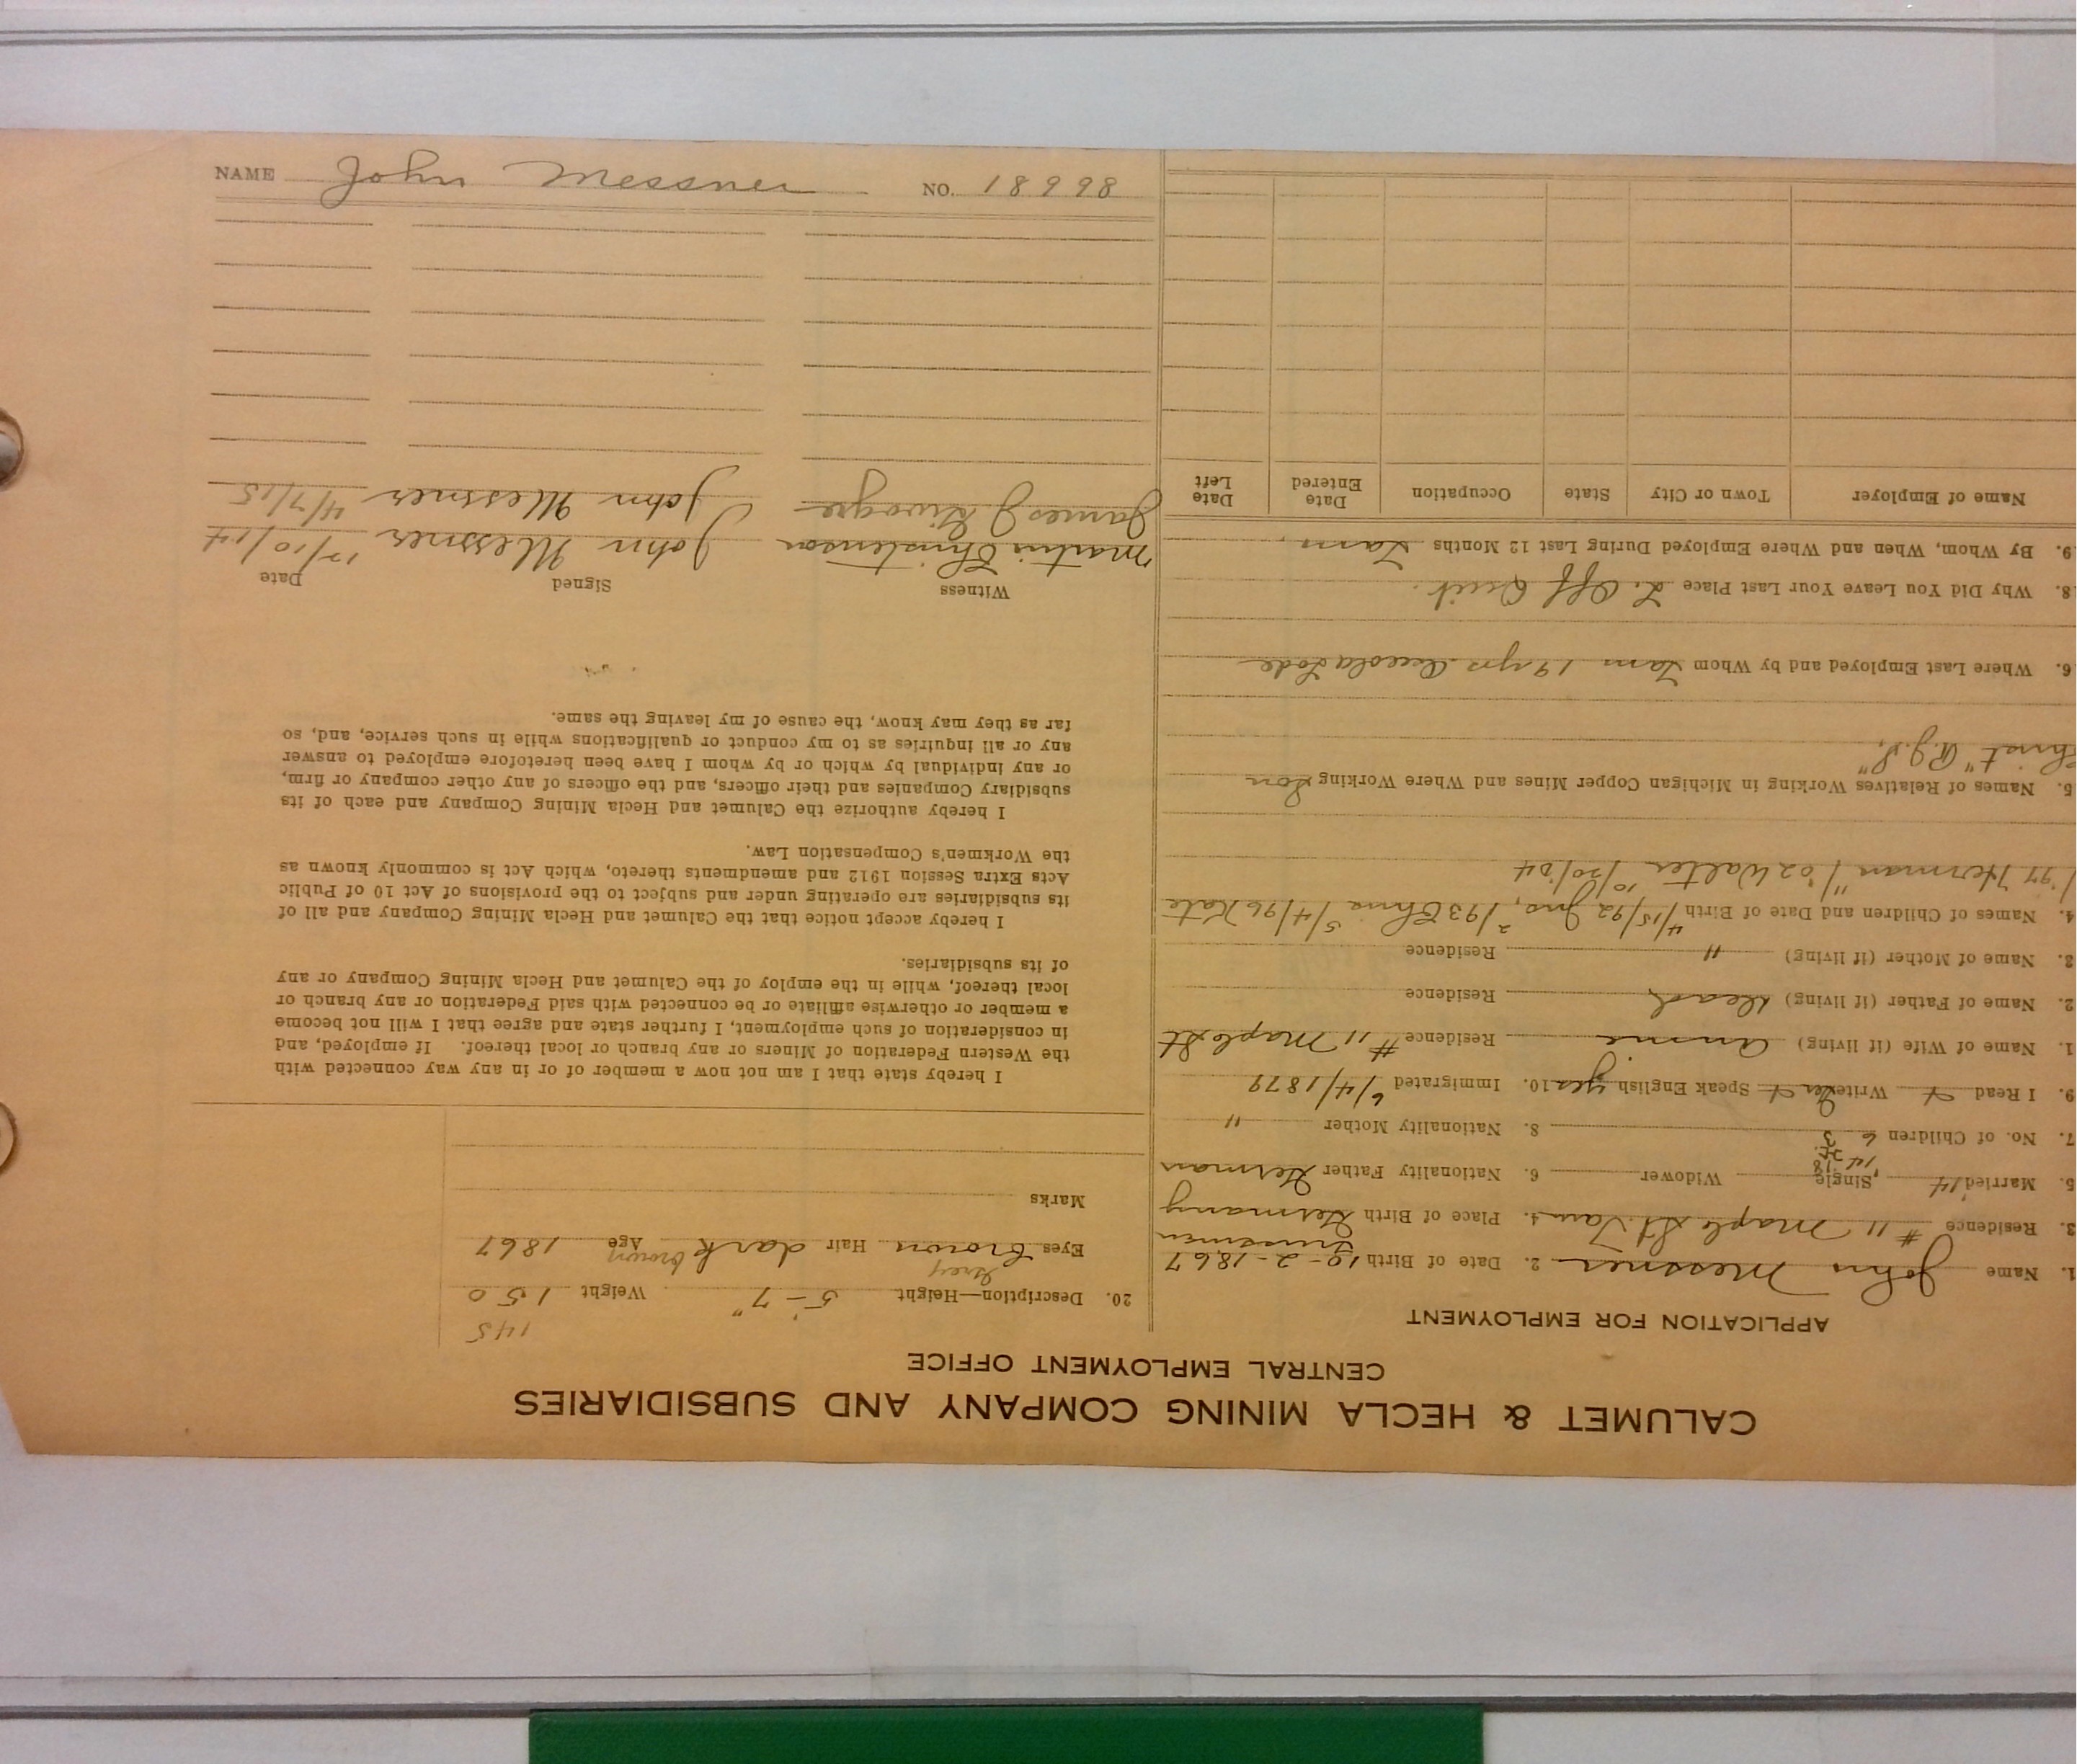 CALUMET & HECLA MINING COMPANY AND SUBSIDIARIES
CENTRAL EMPLOYMENT OFFICE
APPLICATION FOR EMPLOYMENT
1. Name John Messner 2. Date of Birth 10-2-1867
3. Residence # 11 Maple St 4. Place of Birth Germany
5. Married Single Widower 6. Nationality Father German
7. No. of Children 6 8. Nationality Mother "
9. I Read Write Speak English yes 10. Immigrated 6/4/1879
1. Name of Wife (if living) Residence # 11 Maple St
2. Name of Father (if living) dead Residence
3. Name of Mother (if living) " Residence
4. Names of Children and Date of Birth 4/15/92 Jno, 2/93 Chris 5/4/96 Kate
Herman "/02 Walter 10/20/04
5. Names of Relatives Working in Michigan Copper Mines and Where Working Son
6. Where Last Employed and by Whom Tam 19 yrs. Osceola Lode
8. Why Did You Leave Your Last Place L. Off Quit.
9. By Whom, When and Where Employed During Last 12 Months Tam
Name of Employer Town or City State Occupation Date Entered Date Left
145
20. Description—Height 5'-7" Weight 150
Grey
Eyes brown Hair dark brown Age 1867
Marks
I hereby state that I am not now a member of or in any way connected with
the Western Federation of Miners or any branch or local thereof. If employed, and
in consideration of such employment, I further state and agree that I will not become
a member or otherwise affiliate or be connected with said Federation or any branch or
local thereof, while in the employ of the Calumet and Hecla Mining Company or any
of its subsidiaries.
I hereby accept notice that the Calumet and Hecla Mining Company and all of
its subsidiaries are operating under and subject to the provisions of Act 10 of Public
Acts Extra Session 1912 and amendments thereto, which Act is commonly known as
the Workmen's Compensation Law.
I hereby authorize the Calumet and Hecla Mining Company and each of its
subsidiary Companies and their officers, and the officers of any other company or firm,
or any individual by which or by whom I have been heretofore employed to answer
any or all inquiries as to my conduct or qualifications while in such service, and, so
far as they may know, the cause of my leaving the same.
Witness Signed Date
Martin Christenson John Messner 12/10/14
James J John Messner 4/7/15
NAME John Messner NO. 18998